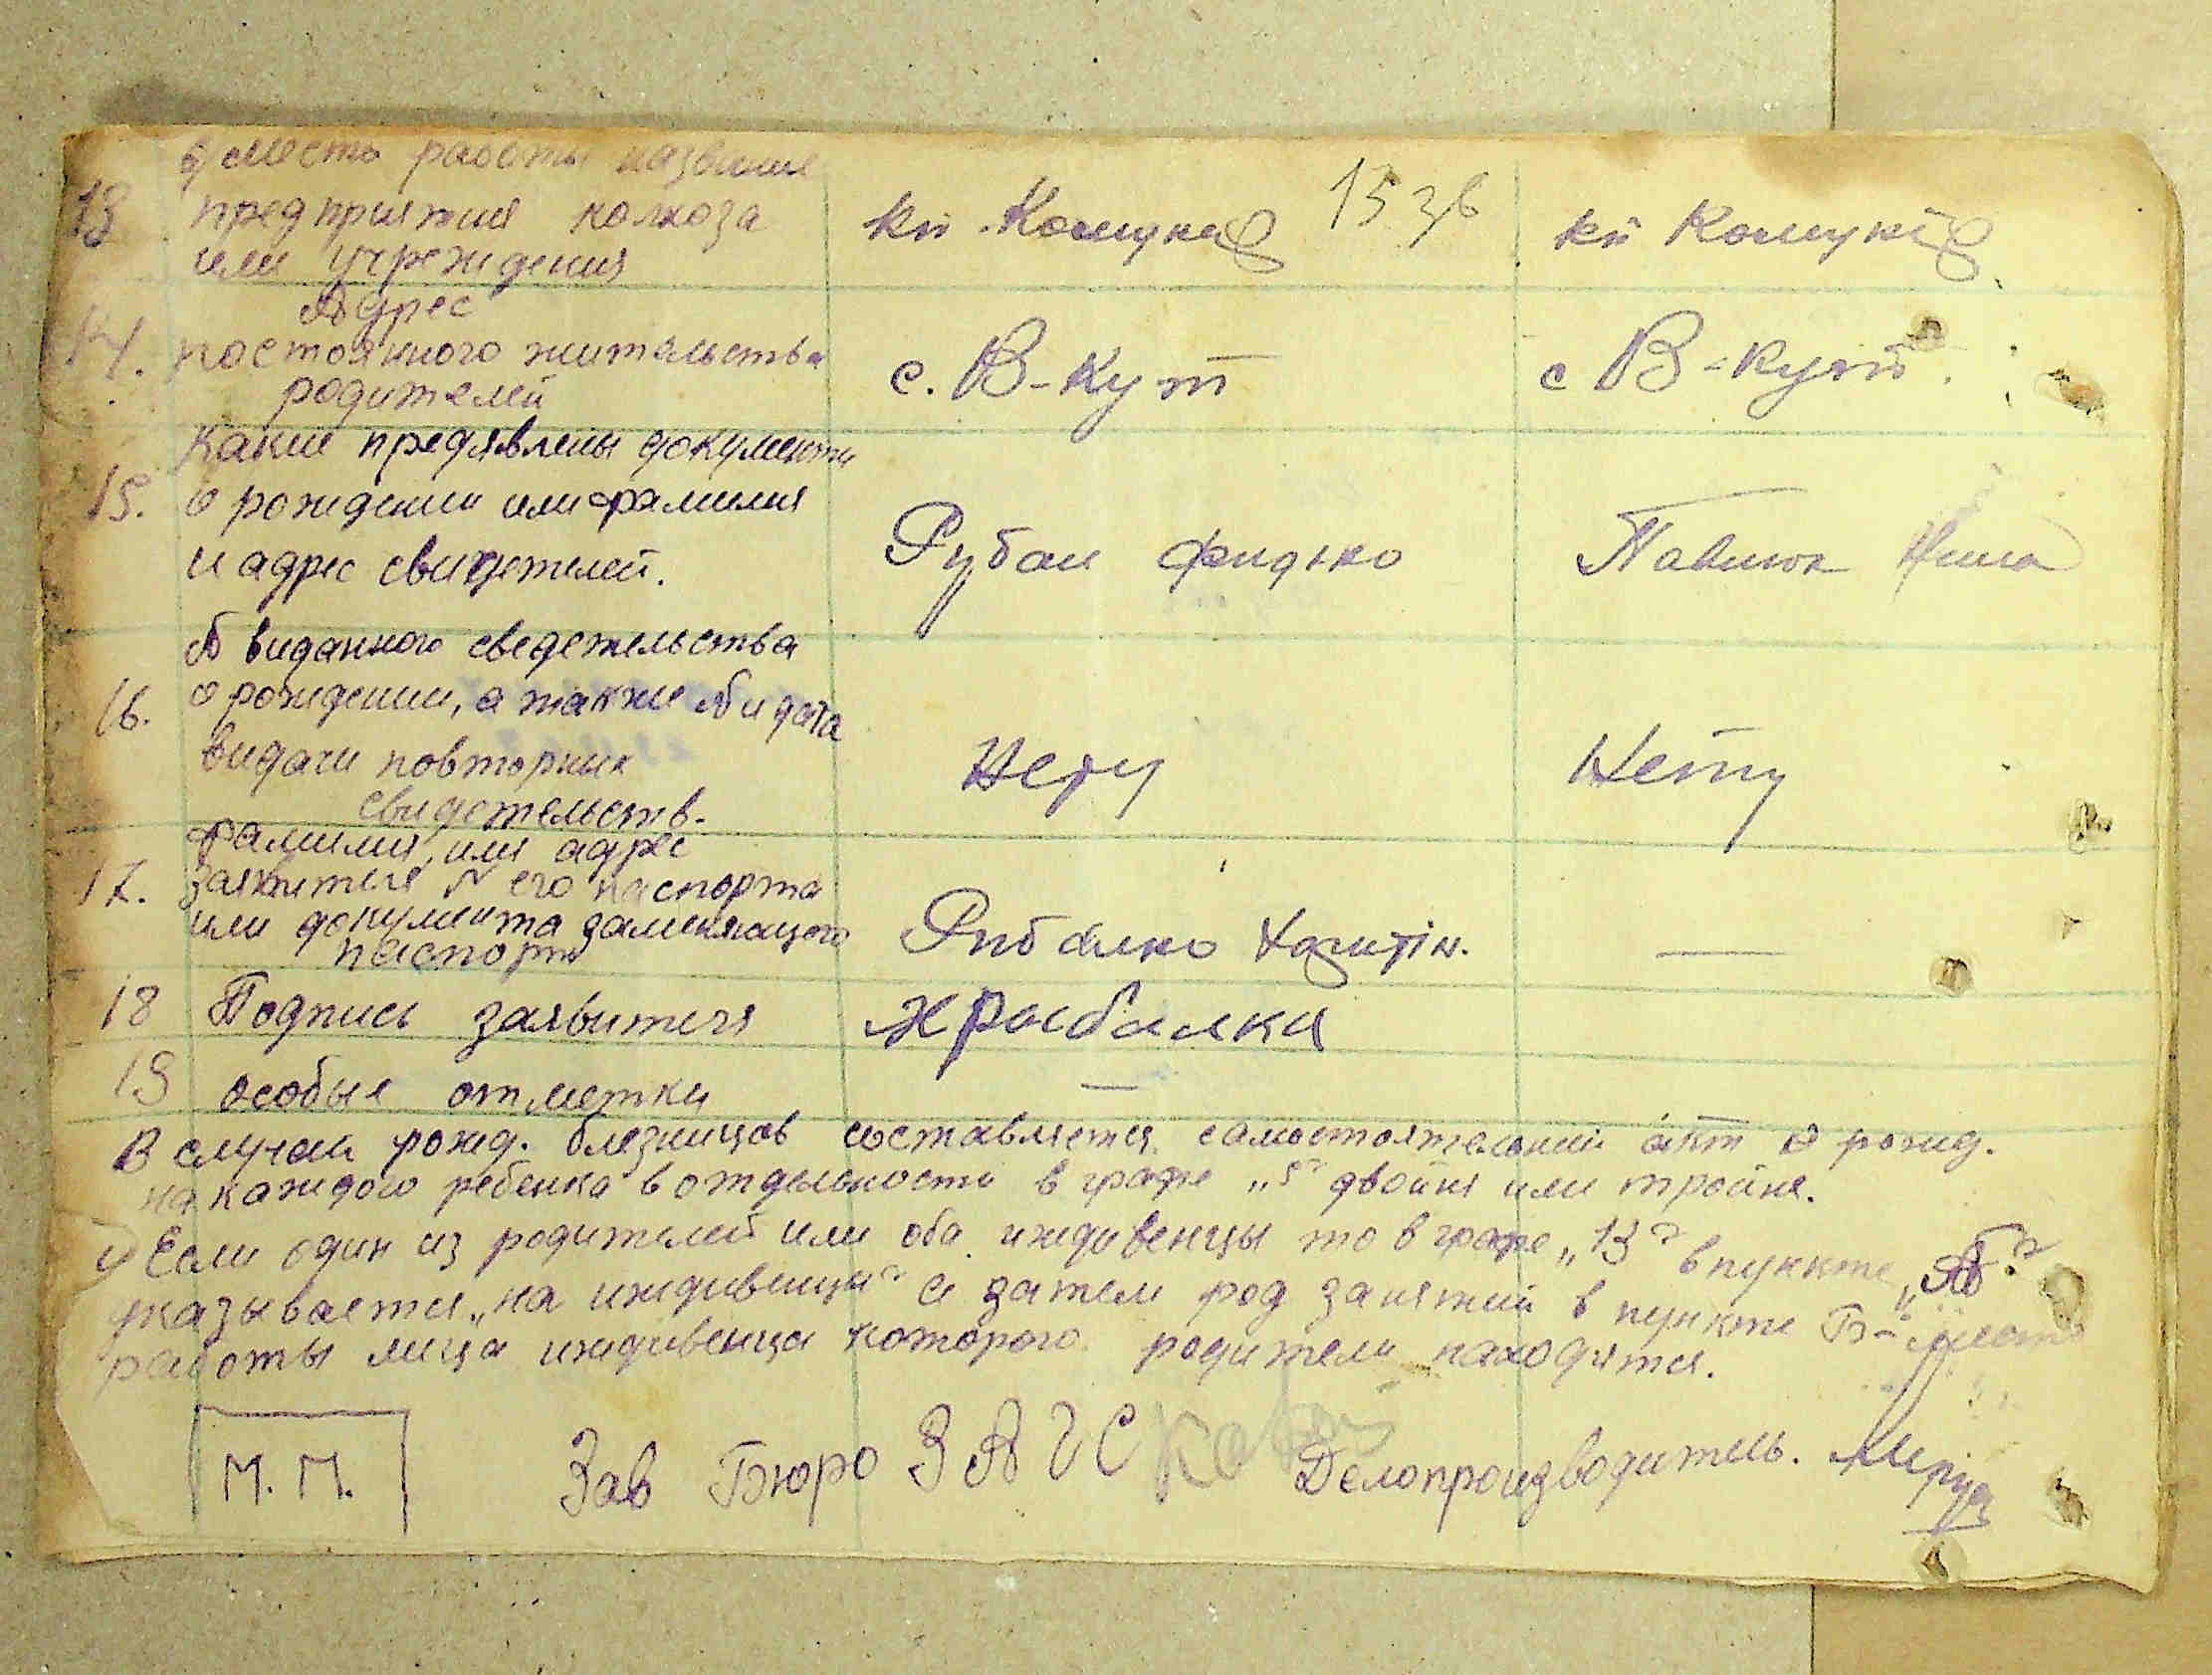 б) место работы название
13 предприятия колхоза
или учреждения
кп Комуна
15 зв
кп Комуна
14. Адрес
постоянного жительства
родителей
с. В-Кут
с В-Кут
Какие предявлены документи
15. о рождении или фамилия
и адрес свидетелей.
Рубан Фидько
Павлюк Нина
№ виданного сведетельства
16. о рождении, а также № и дата
видачи повторних
свидетельств.
Нету
Нету
фамилия, имя адрес
17. заявителя № его паспорта
или документа заменяющего
паспорт
Рибалко
—
18 Подпись заявителя
Рыбалка
19 особые отметки
—
В случаи рожд. близницов составляется самостоятельний акт о рожд.
на каждого ребенка в отдельности в графе „5" двойня или тройня.
Если один из родителей или оба иждивенцы то в графе „13" в пункте „А"
указывается „на иждивенции" и затем род занятий в пункте Б- место
работы лица иждивенца которого родители находятся.
М. П.
Зав Бюро ЗАГС
Делопроизводитель.